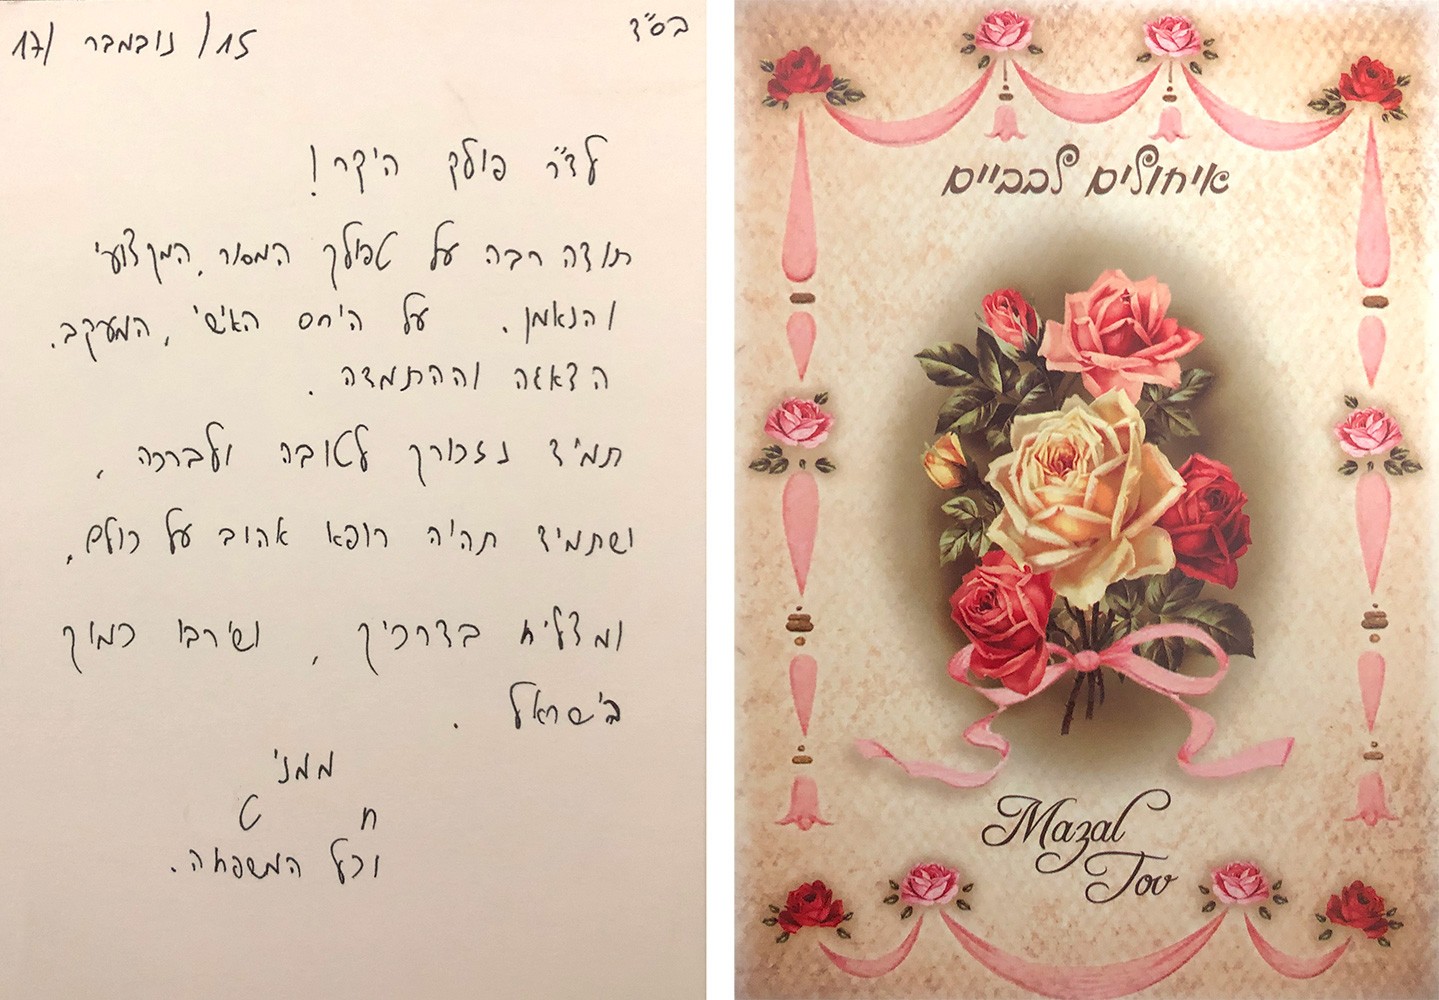 בס"ד
15/ נובמבר /17
לד"ר פולק היקר!
תודה רבה על טפולך המסור, המקצועי
והנאמן. על היחס האישי, המעקב.
הדאגה וההתמדה.
תמיד נזכורך לטובה ולברכה,
ושתמיד תהיה רופא אהוב על כולם,
ומצליח בדרכיך, ושירבו כמוך
בישראל.
ממני
ח ט
וכל המשפחה.
איחולים לבביים
Mazal
Tov